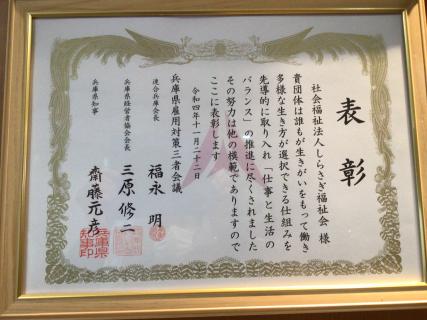 表彰
社会福祉法人しらさぎ福祉会 様
貴団体は誰もが生きがいをもって働き
多様な生き方が選択できる仕組みを
先導的に取り入れ「仕事と生活の
バランス」の推進に尽くされました
その努力は他の模範でありますので
ここに表彰します
令和四年十一月二十二日
兵庫県雇用対策三者会議
連合兵庫会長 福永 明
兵庫県経営者協会会長 三原 修二
兵庫県知事 齋藤元彦
兵庫県知事印